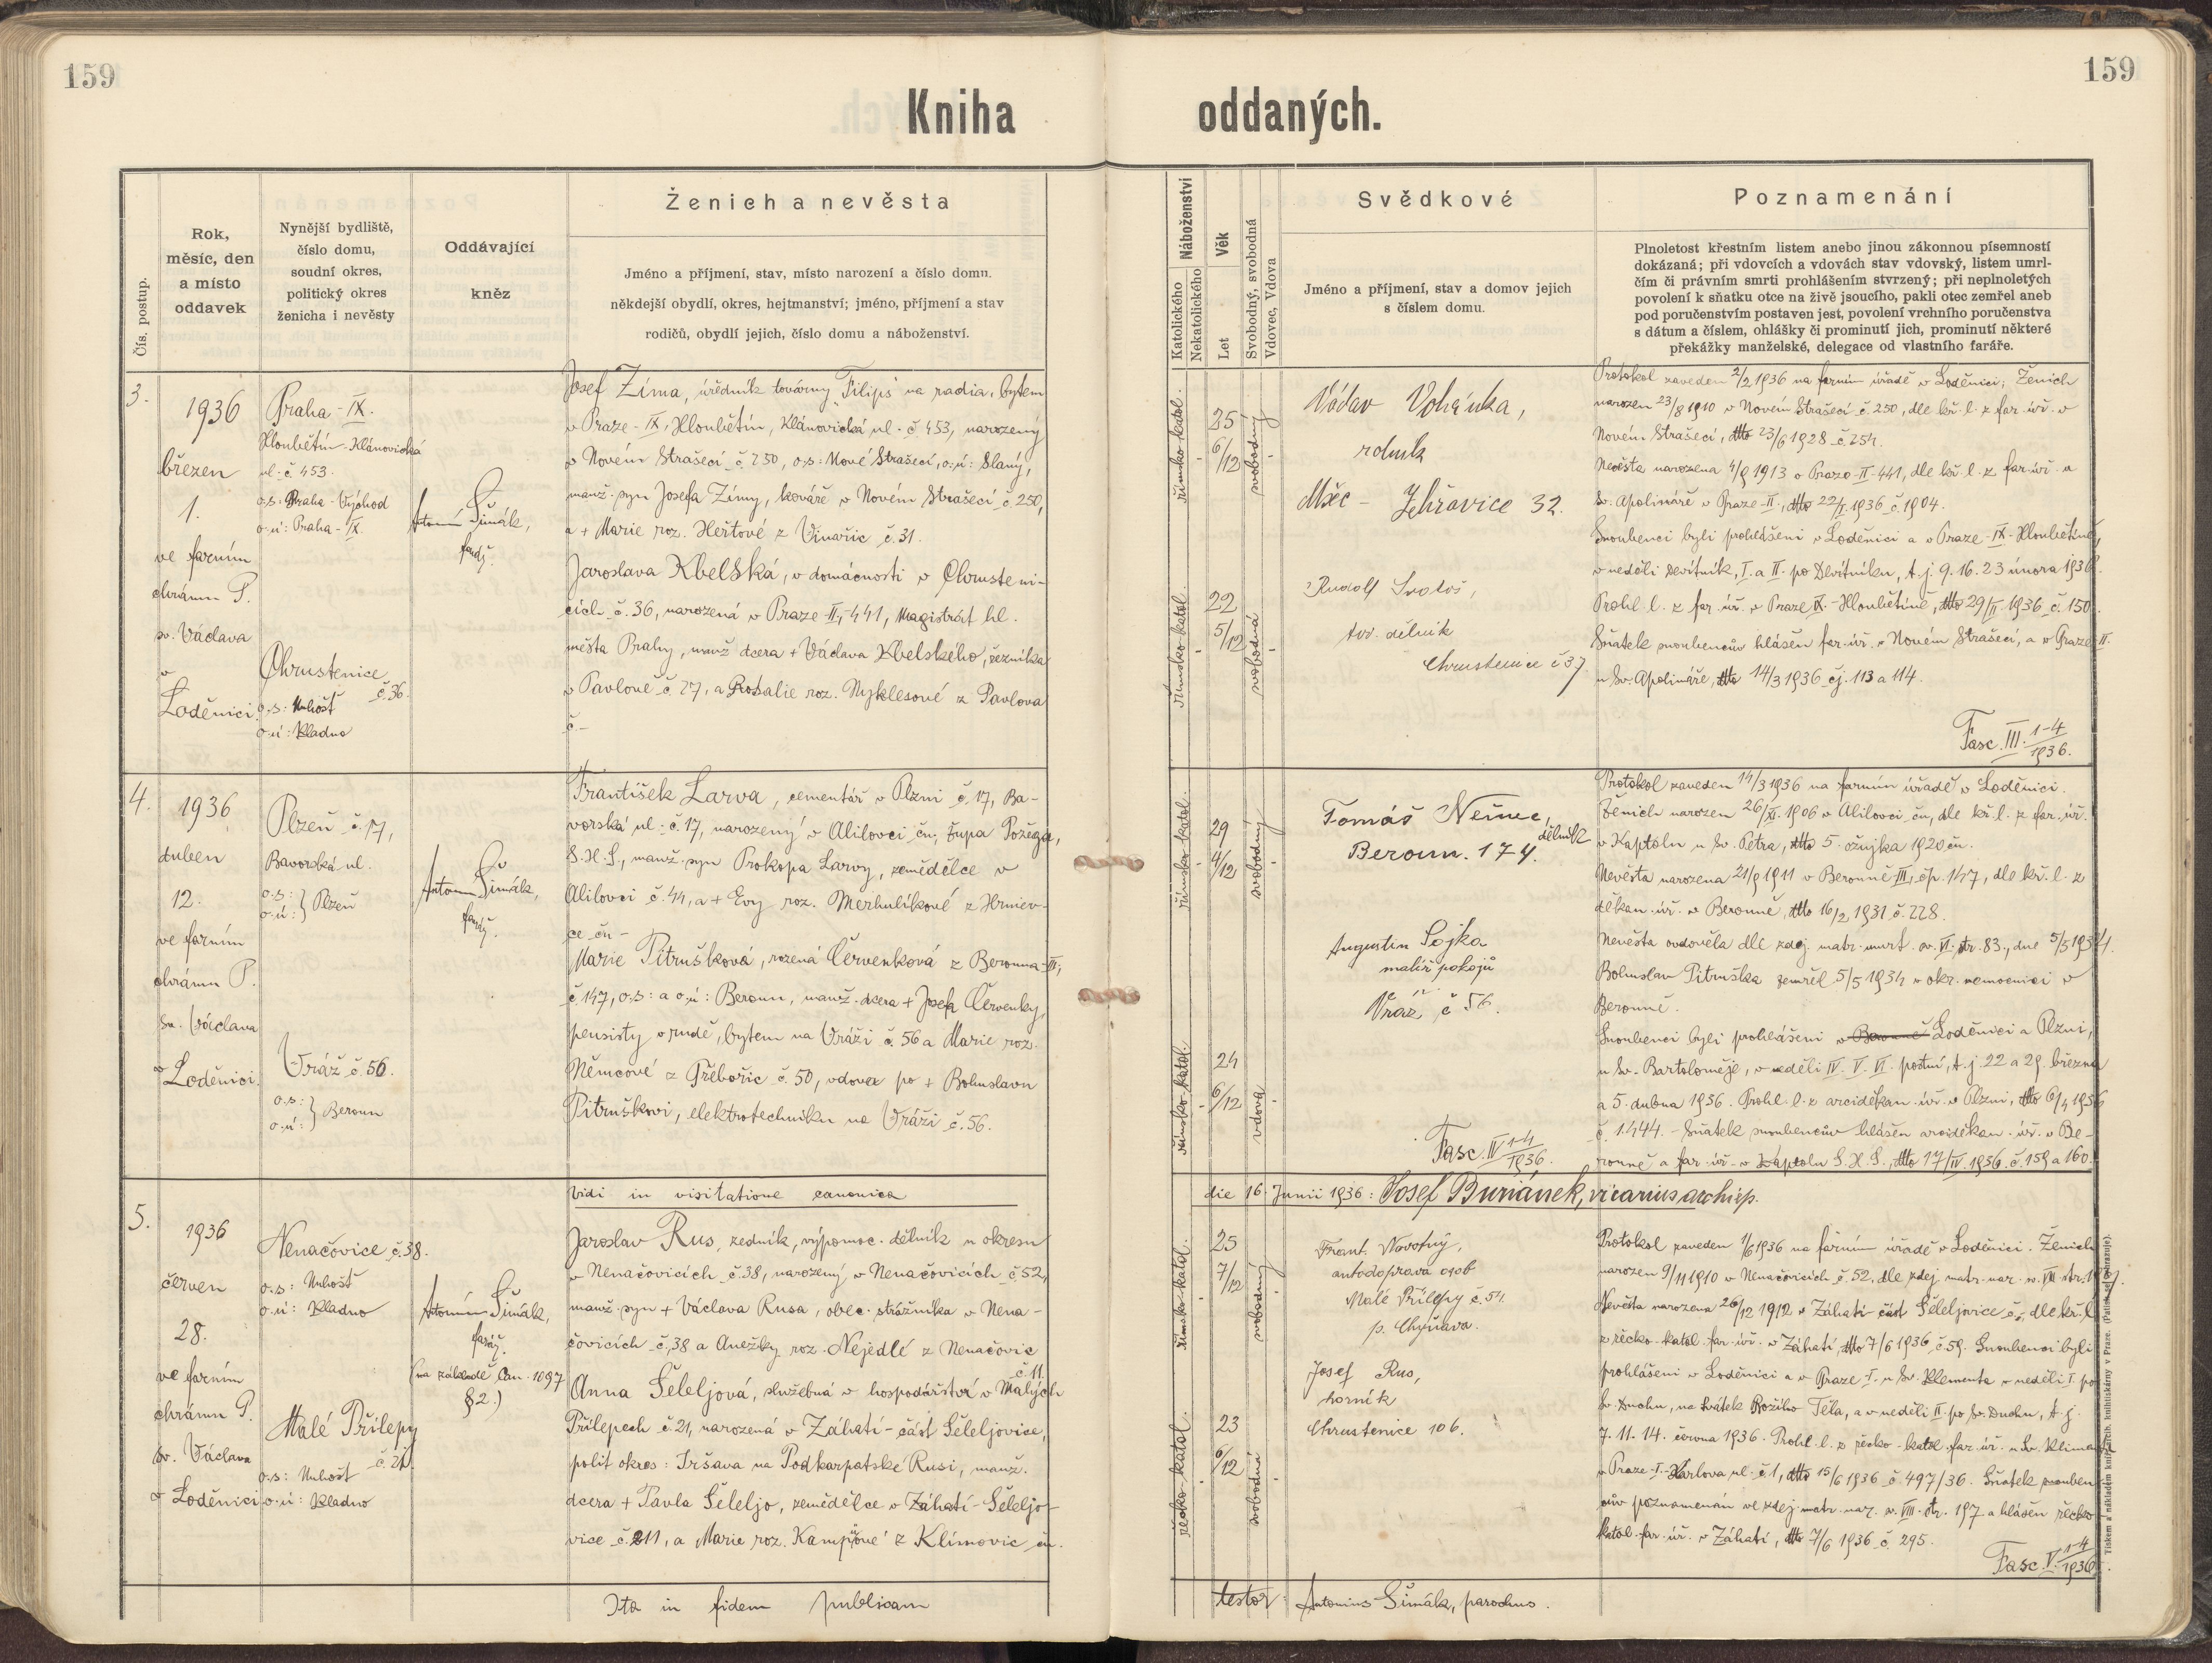 159
159
Kniha oddaných.
Čís. postup.
Rok,
měsíc, den
a místo
oddavek
Nynější bydliště,
číslo domu,
soudní okres,
politický okres
ženicha i nevěsty
Oddávající
kněz
Ženich a nevěsta
Jméno a příjmení, stav, místo narození a číslo domu.
někdejší obydlí, okres, hejtmanství; jméno, příjmení a stav
rodičů, obydlí jejich, číslo domu a náboženství.
Náboženství
Katolického
Nekatolického
Věk
Let
Svobodný, svobodná
Vdovec, Vdova
Svědkové
Jméno a příjmení, stav a domov jejich
s číslem domu.
Poznamenání
Plnoletost křestním listem anebo jinou zákonnou písemností
dokázaná; při vdovcích a vdovách stav vdovský, listem umrl-
čím či právním smrti prohlášením stvrzený; při neplnoletých
povolení k sňatku otce na živě jsoucího, pakli otec zemřel aneb
pod poručenstvím postaven jest, povolení vrchního poručenstva
s dátum a číslem, ohlášky či prominutí jich, prominutí některé
překážky manželské, delegace od vlastního faráře.
3.
1936
březen
1.
ve farním
chrámu P.
sv. Václava
v
Loděnici.
Praha - IX.
Hloubětín - Klánovická
ul. č. 453.
o.s: Praha - Východ
o.ú: Praha - IX.
Chrustenice
č. 36.
o.s: Unhošť
o.ú: Kladno
Antonín Šimák,
farář.
Josef Zíma, úředník továrny "Filips" na radia, bytem
v Praze - IX, Hloubětín, Klánovická ul. č. 453, narozený
v Novém Strašecí č. 250, o.s: Nové Strašecí, o.ú: Slaný,
manž. syn Josefa Zímy, kováře v Novém Strašecí č. 250,
a + Marie roz. Heřtové z Vinařic č. 31.
Jaroslava Kbelská, v domácnosti v Chrusteni-
cích č. 36, narozená v Praze - II, - 441, Magistrát hl.
města Prahy, manž. dcera + Václava Kbelského, řezníka
v Pavlově č. 27, a Rosalie roz. Nyklesové z Pavlova
č. -
římsko-katol.
25
6/12
svobodný
římsko-katol.
22
5/12
svobodná
Václav Vohánka,
rolník
Mšec - Jehřavice 32.
Rudolf Svatoš,
tov. dělník
Chrustenice č 37
Protokol zaveden 2/2 1936 na farním úřadě v Loděnici; Ženich
narozen 23/8 1910 v Novém Strašecí č. 250, dle kř. l. z far. úř. v
Novém Strašecí, dtto 23/6 1928 č. 254.
Nevěsta narozena 4/9 1913 v Praze - II - 441, dle kř. l. z far. úř. u
sv. Apolináře v Praze - II., dtto 22/I. 1936 č. 1904.
Snoubenci byli prohlášeni v Loděnici a v Praze - IX - Hloubětíně,
v neděli Devítník, I. a II. po Devítníku, t. j. 9. 16. 23 února 1936.
Prohl. l. z far. úř. v Praze IX. - Hloubětíně, dtto 29/II. 1936 č. 150.
Sňatek snoubencův hlášen far. úř. v Novém Strašecí, a v Praze - II.
u Sv. Apolináře, dtto 14/3 1936 čj. 113 a 114.
Fasc. III. 1-4/1936.
4.
1936
duben
12.
ve farním
chrámu P.
Sv. Václava
v Loděnici.
Plzeň č. 17,
Bavorská ul.
o.s: } Plzeň
o.ú:
Vráž č. 56.
o.s: } Beroun
o.ú:
Antonín Šimák,
farář.
František Larva, cementář v Plzni č. 17, Ba-
vorská ul. č. 17, narozený v Alilovci čn, župa Požega,
S.H.S., manž. syn Prokopa Larvy, zemědělce v
Alilovci č. 44, a + Evy roz. Merhulíkové z Hrniev-
ce čn -
Marie Pitrušková, rozená Červenková z Berouna - III,
č. 147, o.s: a o.ú: Beroun, manž. dcera + Josefa Červenky,
pensisty v rudě, bytem na Vráži č. 56 a Marie roz.
Němcové z Třebořic č. 50, vdova po + Bohuslavu
Pitruškovi, elektrotechniku na Vráži č. 56.
římsko-katol.
29
4/12
svobodný
římsko-katol.
24
6/12
vdova
Tomáš Nemec,
dělník
Beroun. 174.
Augustin Sojka
malíř pokojů
Vráž č 56.
Fasc. IV 1-4/1936.
Protokol zaveden 14/3 1936 na farním úřadě v Loděnici.
Ženich narozen 26/XI. 1906 v Alilovci čn, dle kř. l. z far. úř.
v Kaptolu u Sv. Petra, dtto 5. ožujka 1920 čn.
Nevěsta narozena 21/9 1911 v Berouně - III, čp. 147, dle kř. l. z
děkan. úř. v Berouně, dtto 16/2 1931 č. 228.
Nevěsta ovdověla dle zdej. matr. úmrt. sv. VI. str. 83., dne 5/5 1934.
Bohuslav Pitruška zemřel 5/5 1934 v okr. nemocnici v
Berouně.
Snoubenci byli prohlášeni v Berouně Loděnici a Plzni,
u Sv. Bartoloměje, v neděli IV. V. VI. postní, t. j. 22 a 29. března
a 5. dubna 1936. Prohl. l. z arciděkan. úř. v Plzni, dtto 6/4 1936
č. 1.444. - Sňatek snoubencův hlášen arciděkan. úř. v Be-
rouně a far. úř. v Kaptolu S.H.S., dtto 17/IV. 1936. č. 159 a 160.
Vidi in visitatione canonica die 16. Junii 1936: Josef Buriánek, vicarius archiep.
5.
1936
červen
28.
ve farním
chrámu P.
Sv. Václava
v Loděnici
Nenačovice č. 38.
o.s: Unhošť
o.ú: Kladno
Malé Přílepy
č. 21.
o.s: Unhošť
o.ú: Kladno
Antonín Šimák,
farář.
(na základě Can. 1097
§ 2.)
Jaroslav Rus, zedník, výpomoc. dělník u okresu
v Nenačovicích č. 38, narozený v Nenačovicích č. 52,
manž. syn + Václava Rusa, obec. strážníka v Nena-
čovicích č. 38 a Anežky roz. Nejedlé z Nenačovic
č. 11.
Anna Šeleljová, služebná v hospodářství v Malých
Přílepech č. 21, narozená v Záhatí - část Šeleljovice,
polit okres: Iršava na Podkarpatské Rusi, manž.
dcera + Pavla Šeleljo, zemědělce v Záhatí - Šeleljo-
vice č. 211, a Marie roz. Kampové z Klímovic čn.
římsko-katol.
25
7/12
svobodný
řecko-katol.
23
6/12
svobodná
Frant. Novotný,
autodoprava osob
Malé Přílepy č. 51.
p. Chyňava.
Josef Rus,
horník
Chrustenice 106.
Protokol zaveden 1/6 1936 na farním úřadě v Loděnici. Ženich
narozen 9/11 1910 v Nenačovicích č. 52, dle zdej. matr. nar. sv. VIII. str. 197.
Nevěsta narozena 26/12 1912 v Záhatí - část Šeleljovice č., dle kř. l.
z řecko-katol. far. úř. v Záhatí, dtto 7/6 1936 č. 59. Snoubenci byli
prohlášeni v Loděnici a v Praze I. u Sv. Klementa v neděli I. po
Sv. Duchu, na svátek Božího Těla, a v neděli II. po Sv. Duchu, t. j.
7. 11. 14. června 1936. Prohl. l. z řecko-katol. far. úř. u Sv. Klimenta
v Praze - I. - Karlova ul. č. 1, dtto 15/6 1936 č. 497/36. Sňatek snouben
cův poznamenán ve zdej. matr. nar. sv. VIII. str. 197 a hlášen řecko-
katol. far. úř. v Záhatí, dtto 7/6 1936 č. 295.
Fasc. V. 1-4/1936
Ita in fidem publicam testor: Antonius Šimák, parochus.
Tiskem a nákladem knížecí arcib. knihtiskárny v Praze. (Patisk se vyhrazuje).